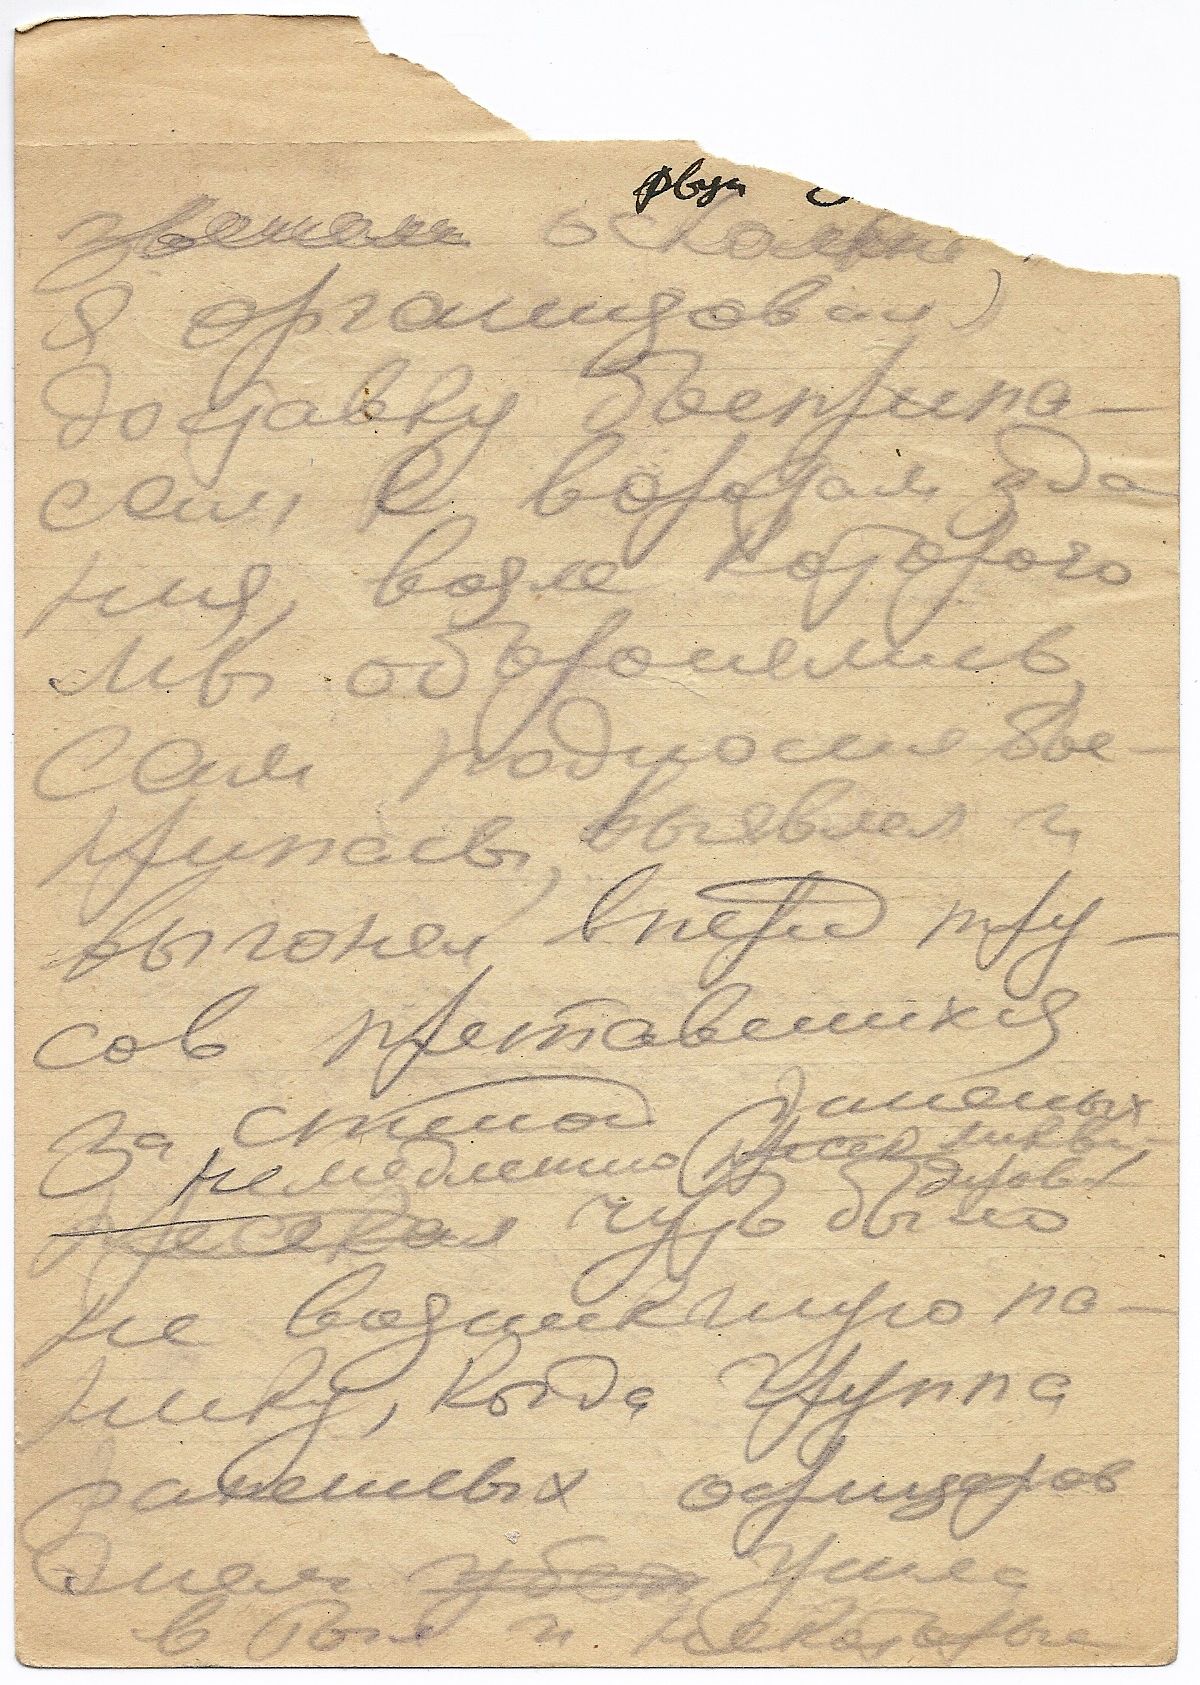 осколка,
я организовал
доставку боеприпа-
сам к воротам зда
ния, возле которого
мы оборонялись,
Сам подносил бое-
припасы, выявлял и
выгонял вперед тру-
сов прятавшихся
за спиной раненых
немедленно пресек ликви-
дировал
пресекал чуть было
не возникшую па-
нику, когда группа
раненых офицеров
Днем ушла
в тыл и некоторые